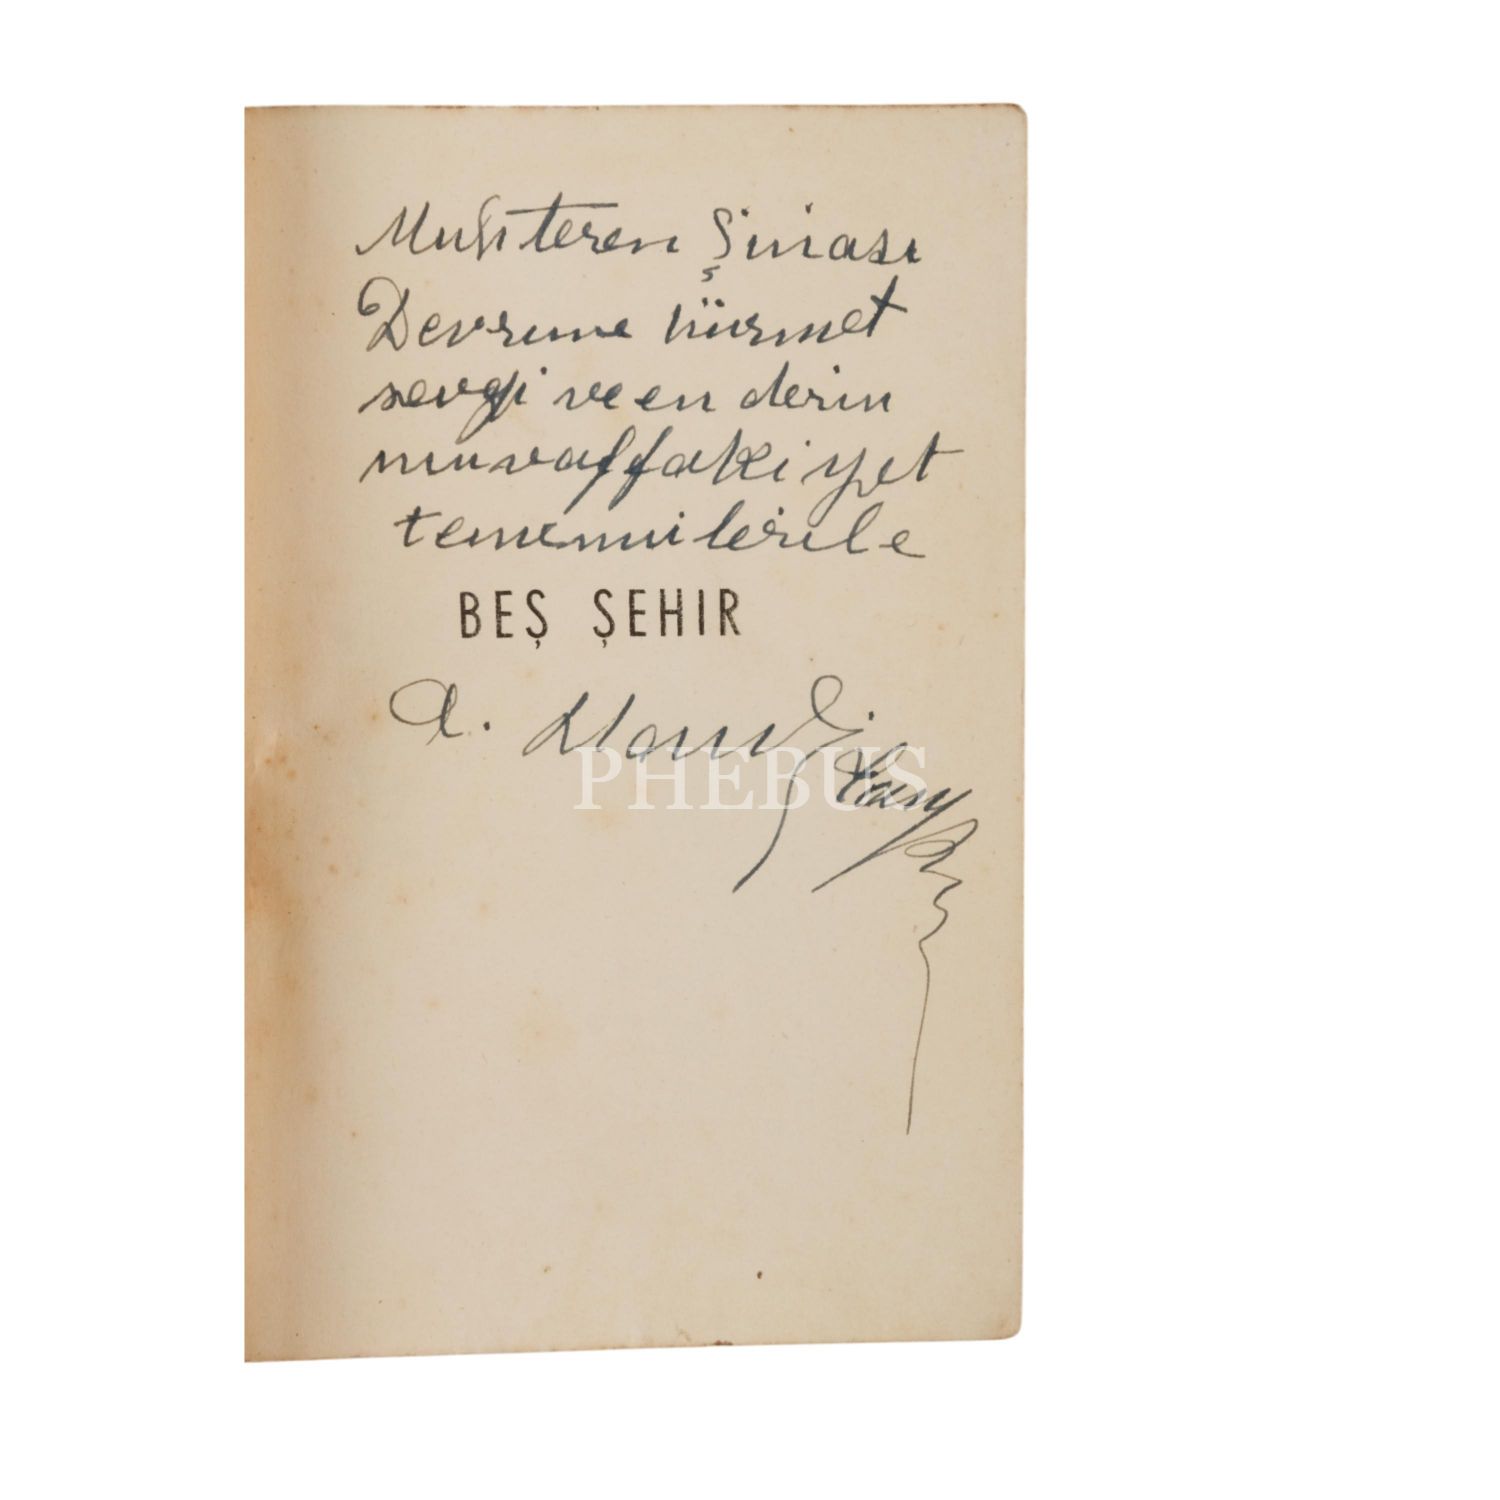 Muhterem Şinasi
Devrime hürmet
sevgi ve en derin
muvaffakiyet
temennilerile
BEŞ ŞEHIR
A. Hamdi Tanpınar
PHEBUS